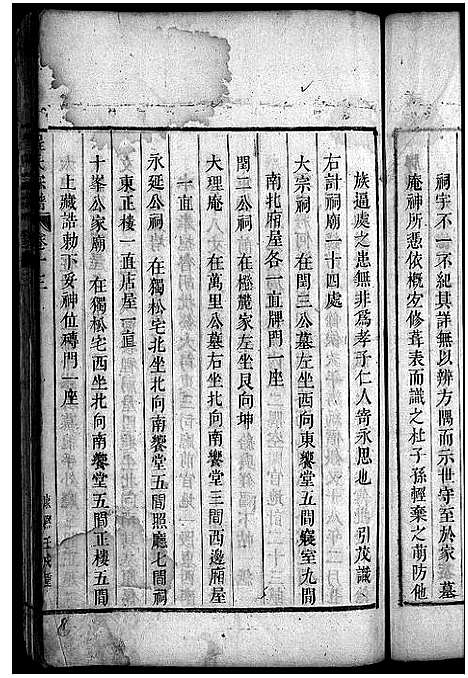 祠宇不一不紀其詳無以辨方隅而示世守至於家墓
庵神所憑依概宜修葺表而識之杜子孫輕棄之萌防他
族逼處之患無非爲孝子仁人寄永思也　引茂識
右計祠廟一十四處
大宗祠　在閏三公墓左坐西向東饗堂五間寢室九間
南北廂屋各一直牌門一座
閏二公祠　在家左坐艮向坤
大理庵　在萬里公墓右坐北向南饗堂三間西邊廂屋
一直
永延公祠　在獨松宅北坐北向南饗堂五間照廳七間祠
東正樓一直店屋一直
十峯公家廟　在獨松宅西坐北向南饗堂五間正樓五間
上藏誥勅下妥神位磚門一座
宗譜
卷十三